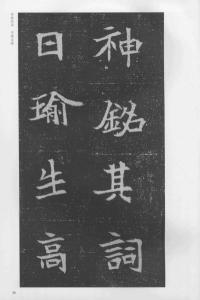 神銘其詞
日瑜生高